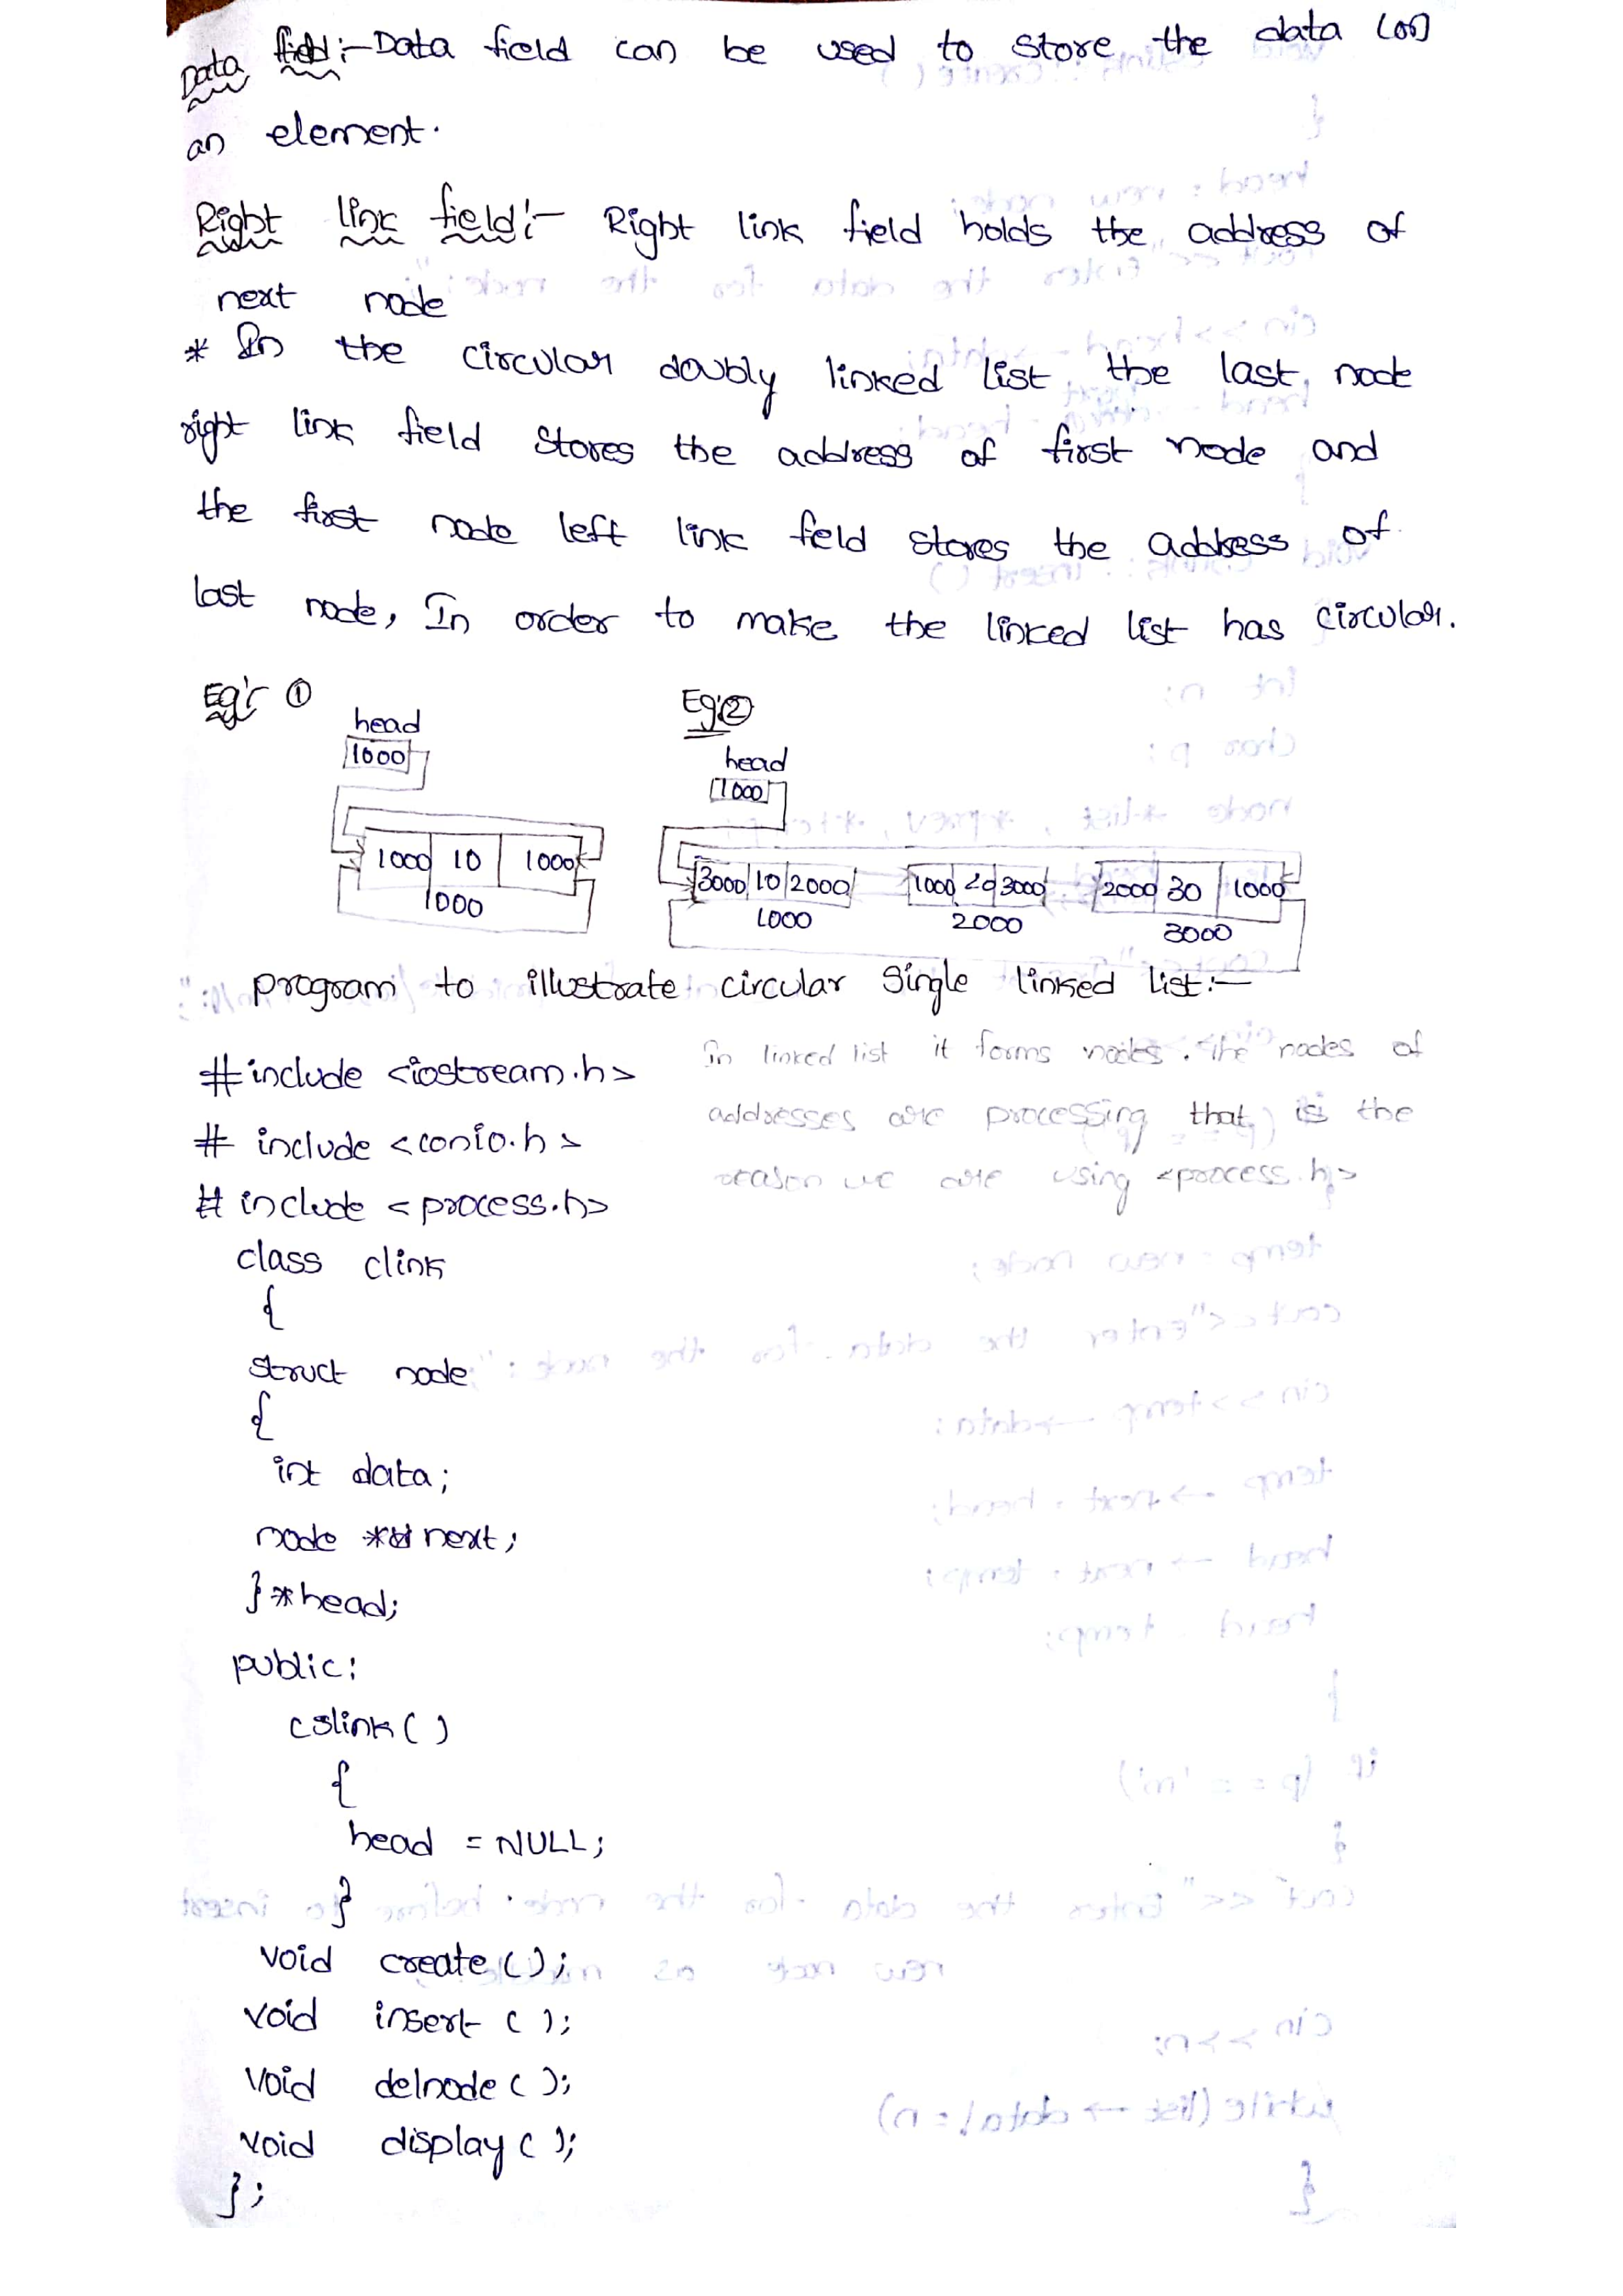 Data field:- Data field can be used to store the data (or)
an element.
Right link field:- Right link field holds the address of
next node
* In the circular doubly linked list the last node
right link field stores the address of first node and
the first node left link field stores the address of
last node, In order to make the linked list has circular.
Eg:- ① Eg:②
head head
1000 1000
1000 10 1000 3000 10 2000 1000 20 3000 2000 30 1000
1000 1000 2000 3000
program to illustrate circular single linked list:-
#include <iostream.h> In linked list it forms nodes. The nodes of
# include <conio.h> addresses are processing that is the
# include <process.h> reason we are using <process.h>
class clink
{
struct node
{
int data;
node * next;
}*head;
public:
cslink( )
{
head = NULL;
}
void create( );
void insert ( );
void delnode ( );
void display ( );
};